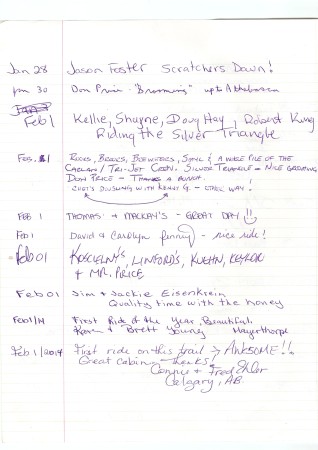 Jan 28 Jason Foster Scratchers Down!
Jan 30 Don Price - "Brumming" up to Athabasca
Feb 1 Kellie, Shayne, Doug Hay, Robert King
Riding the Silver Triangle
Feb. 1 Rocks, Brocks, & A whole Pile of the
/ Tri-Jet Crew. Silver Triangle - Nice Grooming
Don Price - Thanks a bunch.
Kenny G. - way!
Feb 1 Thomas & Mackay's - Great Day!!
Feb 1 David & Carolyn - nice ride!
Feb 01 Koscielny's, Linford's, Kuehn,
& Mr. Price
Feb 01 Jim & Jackie Eisenkrein
Quality time with the honey
Feb 01/14 First Ride of the Year, Beautiful.
& Brett Young Mayerthorpe
Feb 1/2014 First ride on this trail → AWESOME!!
Great cabin - thanks!
Connie & Fred Ehler
Calgary, AB